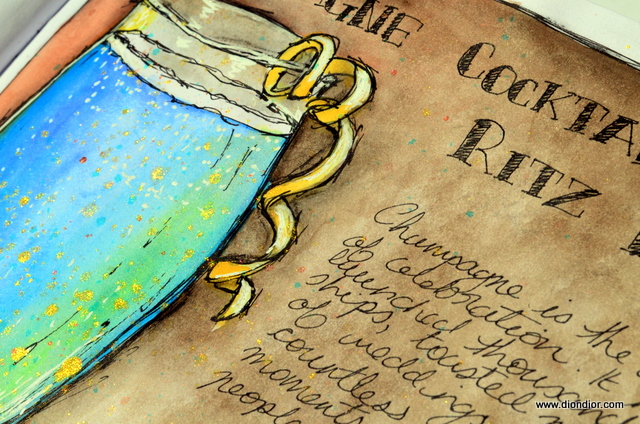 GNE
COCKTA
RITZ
Champagne is the
of celebration. It
launched thousand
ships, toasted
of weddings
countless
moments
people
www.diondior.com